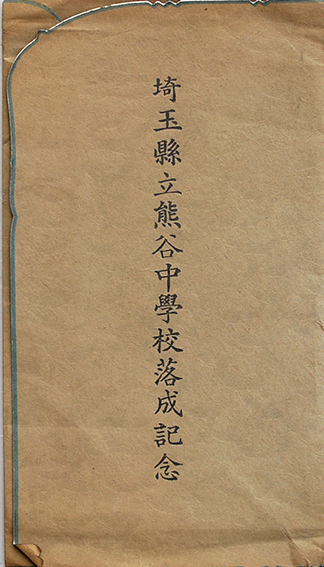 埼玉縣立熊谷中學校落成記念